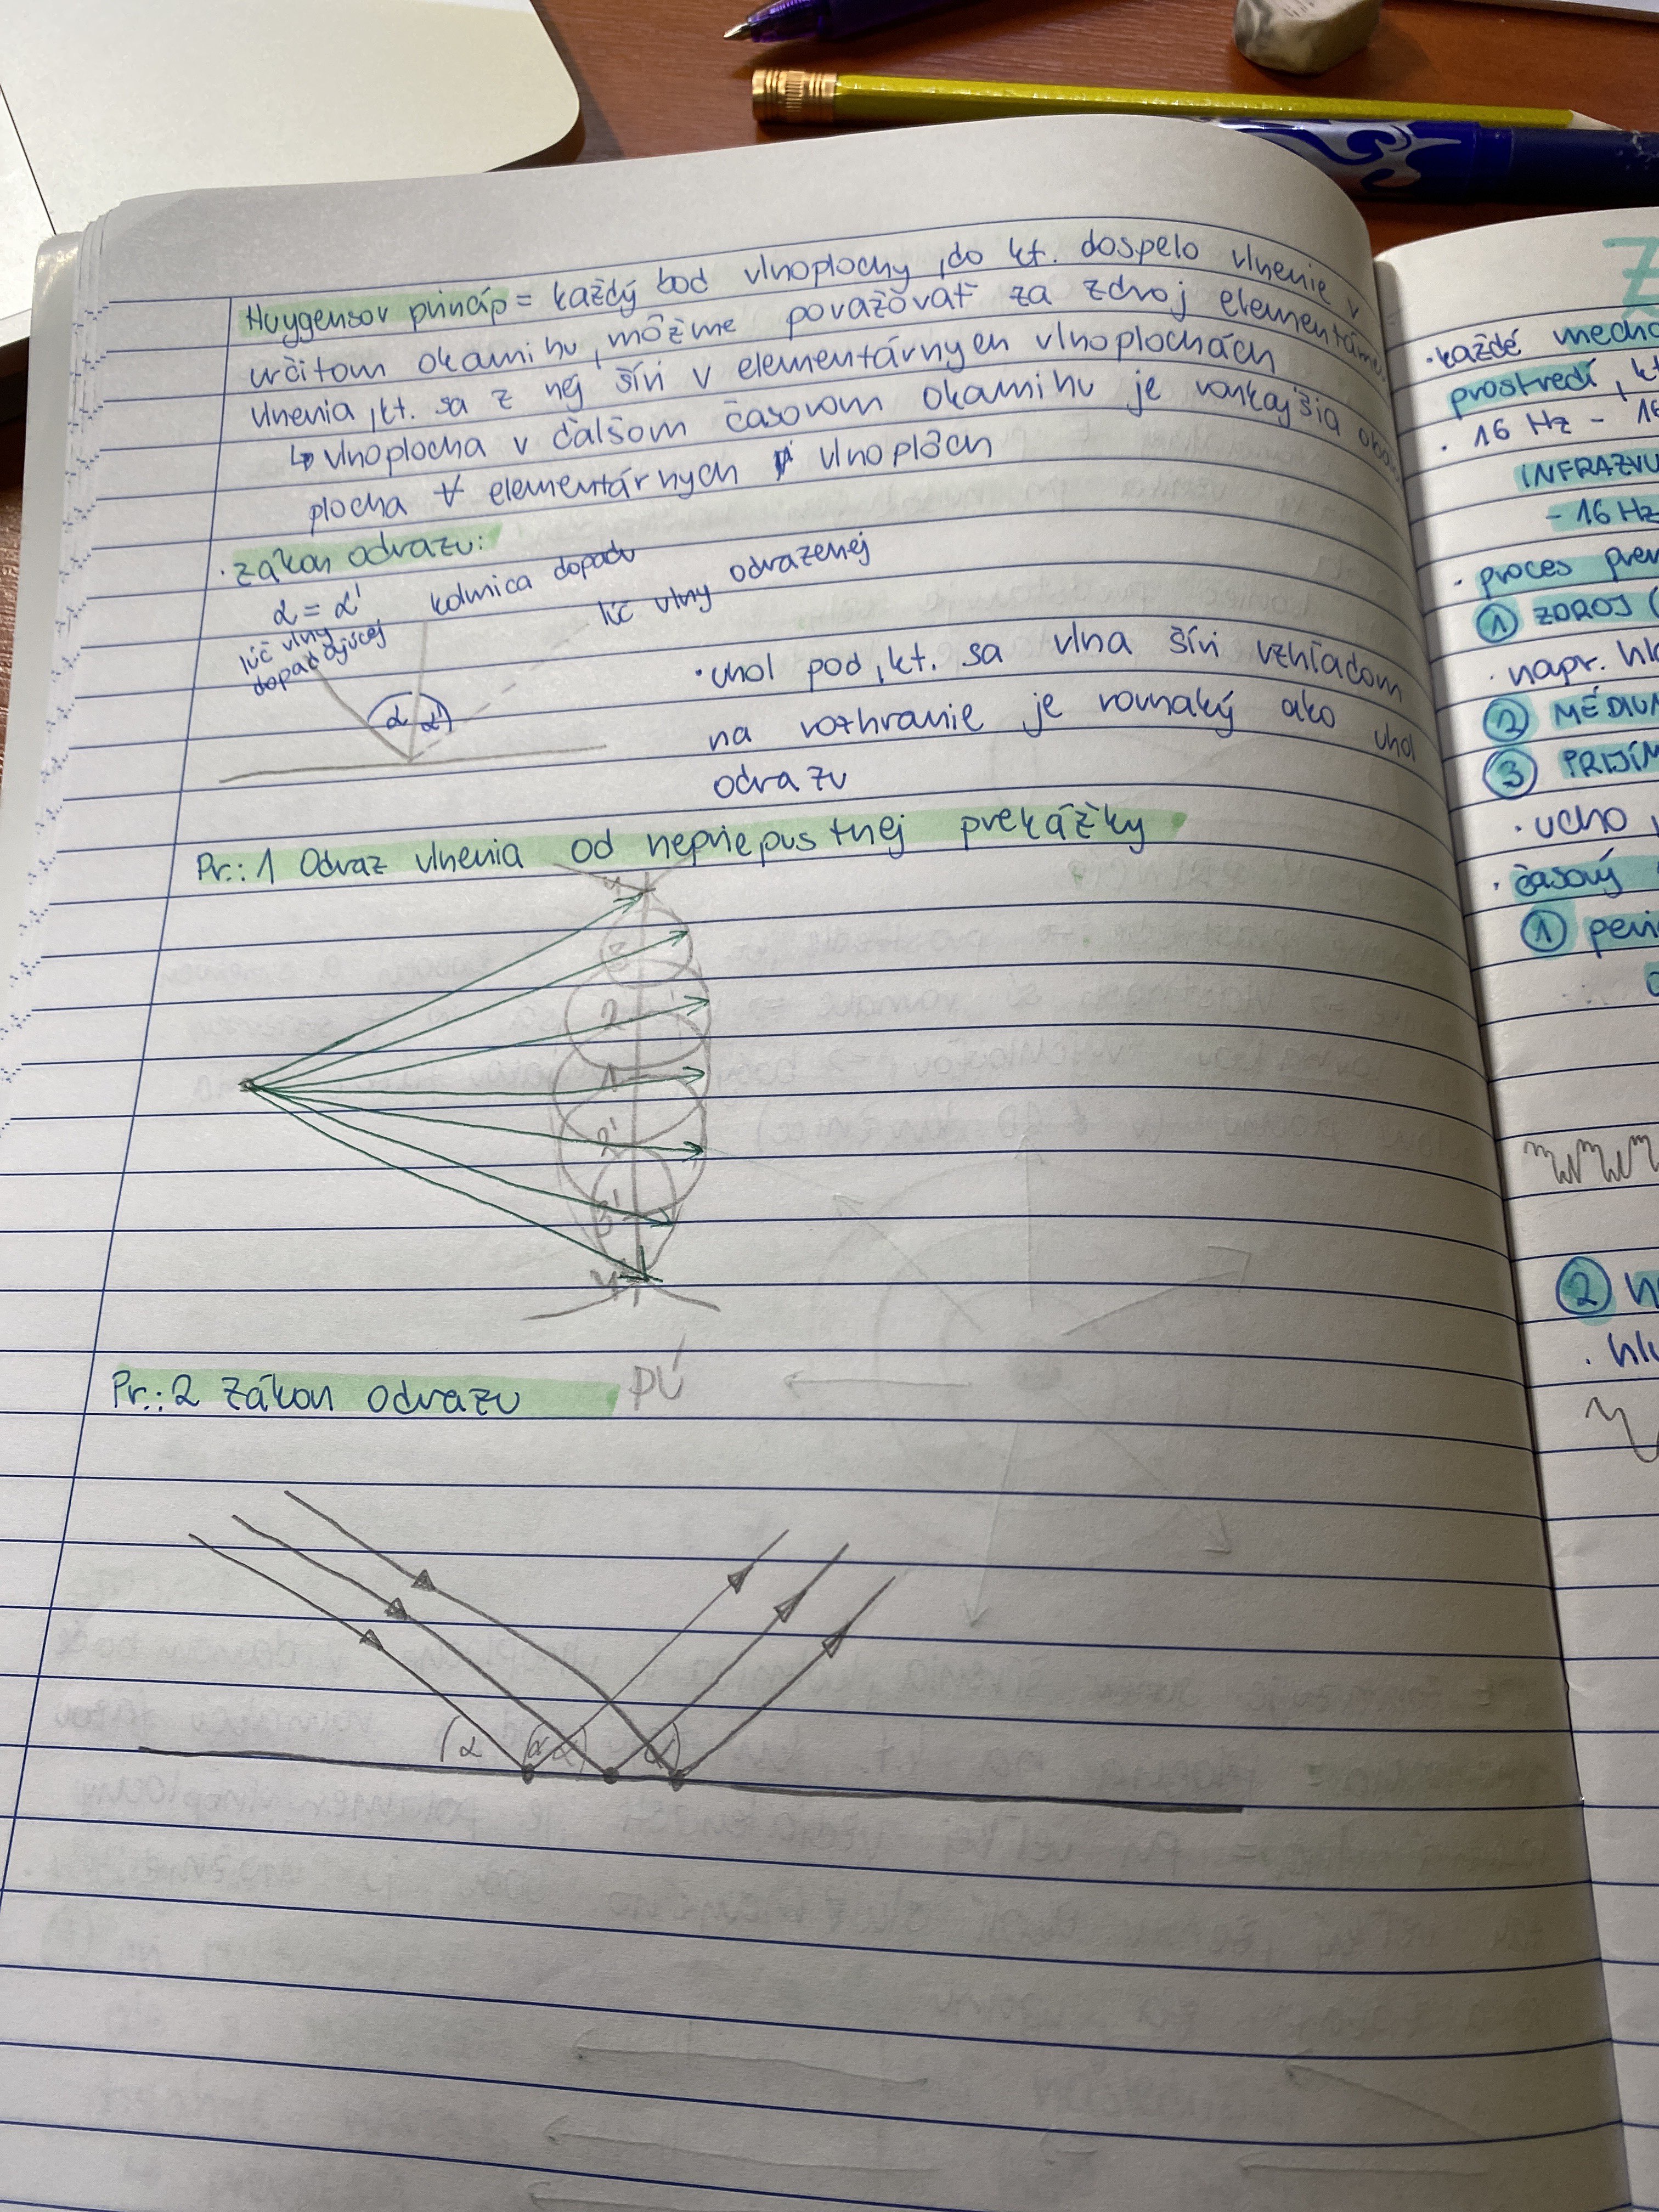 Huygensov princíp = každý bod vlnoplochy, do kt. dospelo vlnenie v
určitom okamihu, môžme považovať za zdroj elementárne
vlnenia, kt. sa z nej šíri v elementárnych vlnoplochách
↳ vlnoplocha v ďalšom časovom okamihu je vonkajšia obal
plocha ∀ elementárnych vlnoplôch
· zákon odrazu:
α = α'
kolmica dopadu
lúč vlny odrazenej
lúč vlny
dopadajúcej
α α'
· uhol pod, kt. sa vlna šíri vzhľadom
na rozhranie je rovnaký ako uhol
odrazu
Pr.: 1 Odraz vlnenia od nepriepustnej prekážky
4
3
2
1
2'
3'
4'
PÚ
Pr.: 2 Zákon odrazu
α α α α
· každé mecha
prostredí, kt
· 16 Hz - 16
INFRAZVU
- 16 Hz
· proces pren
① ZDROJ (
· napr. hla
② MÉDIUM
③ PRIJÍM
· ucho
· časový
① peri
②
· hlu